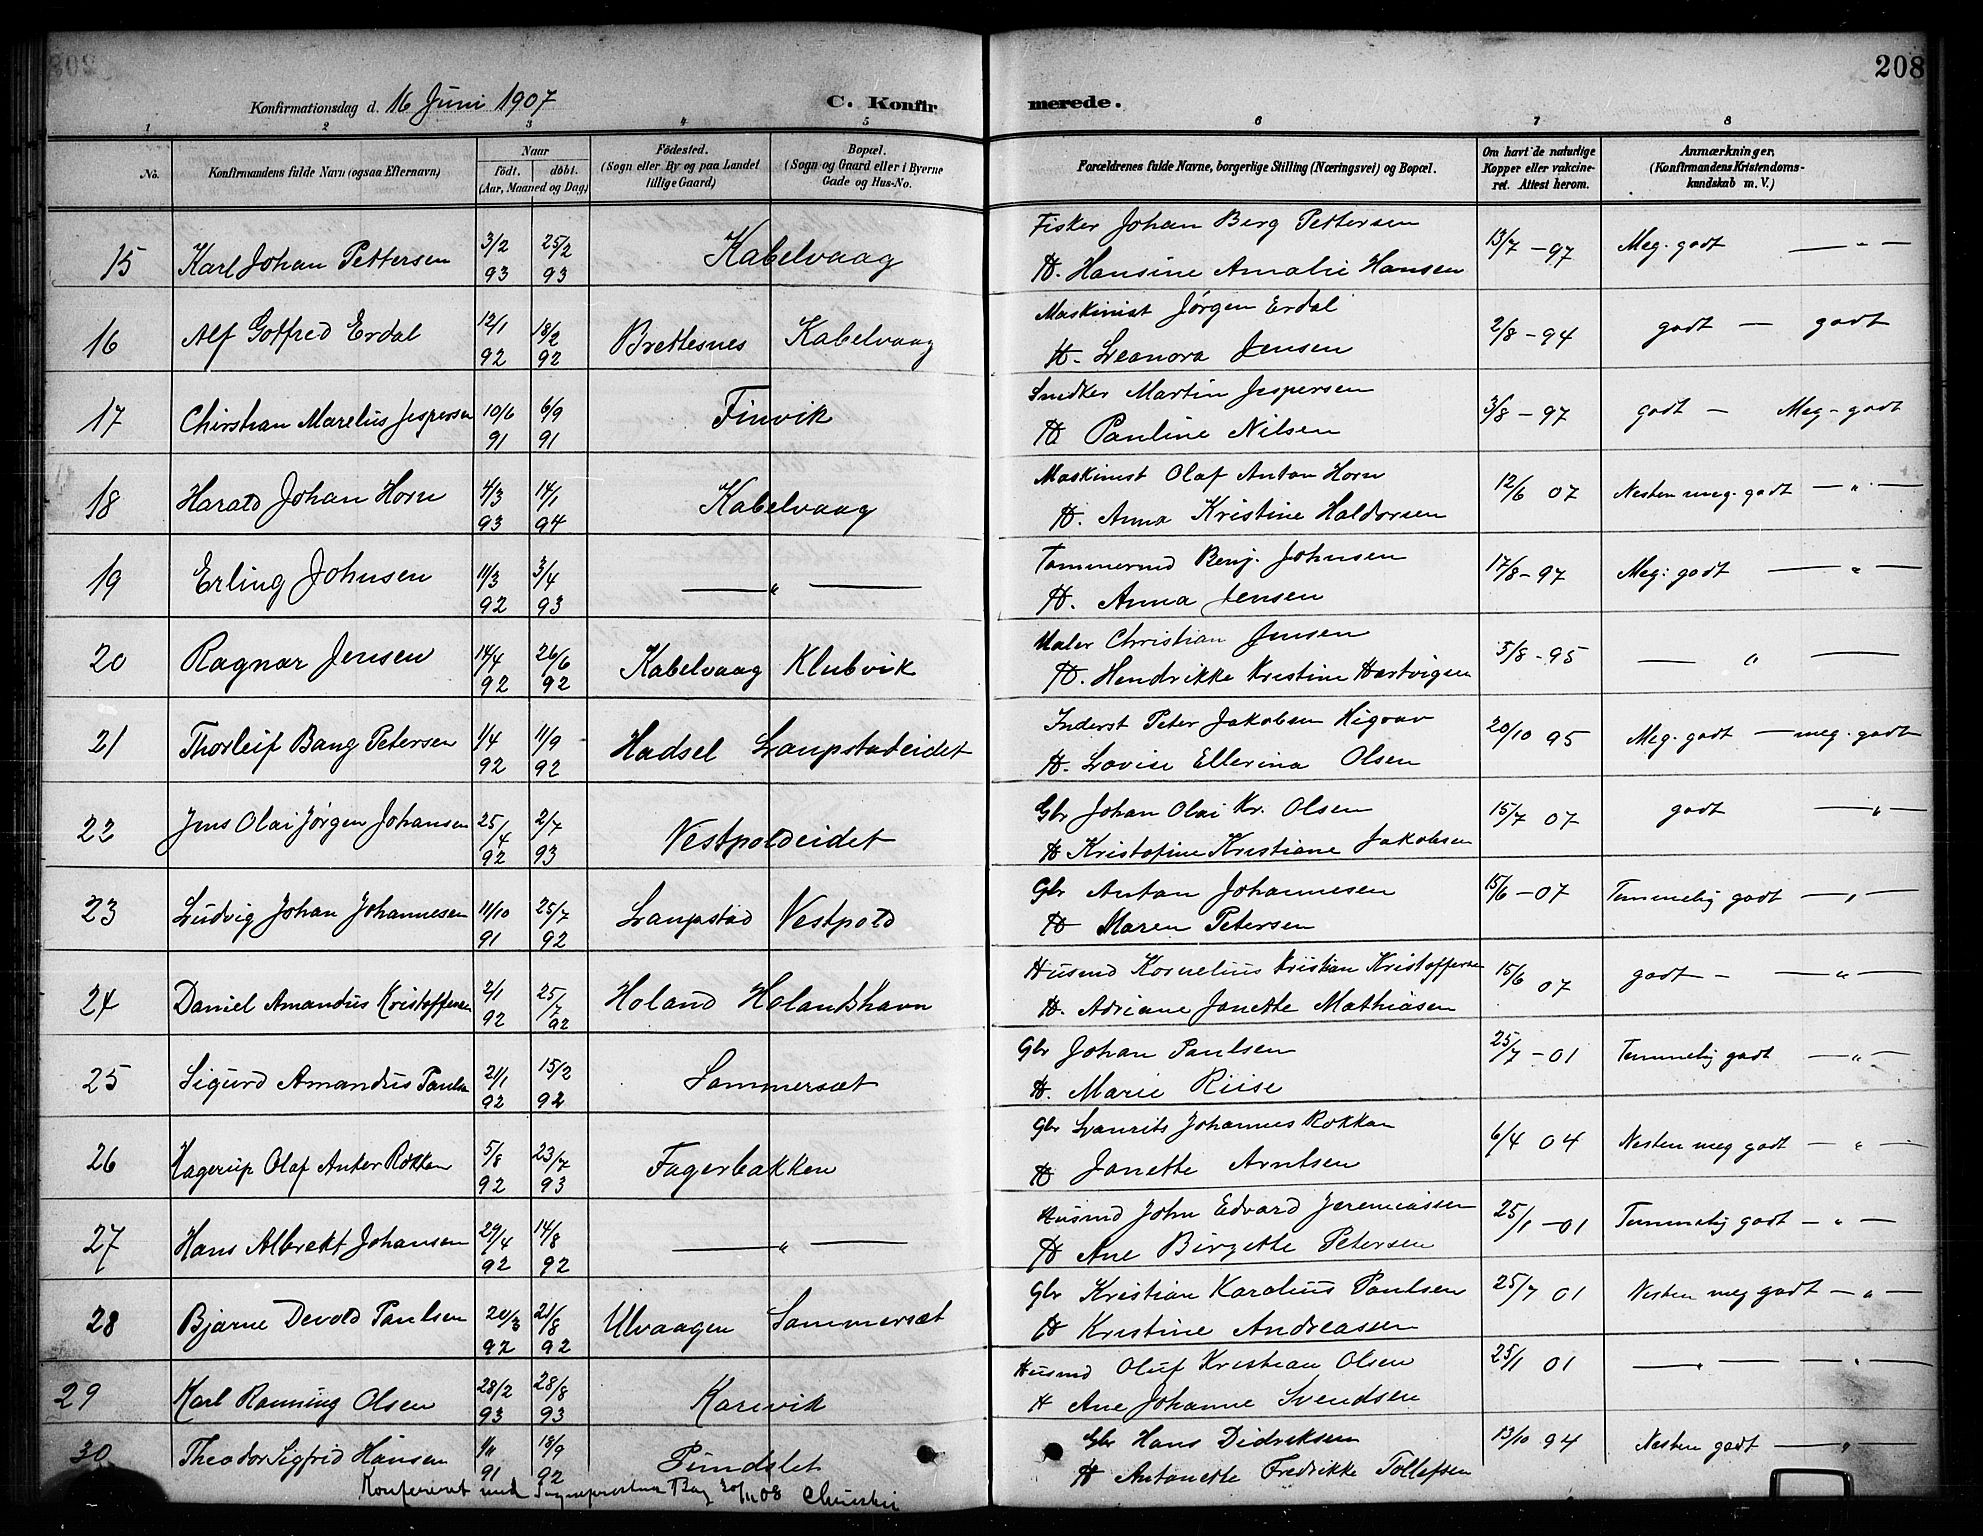 208
Konfirmationsdag d. 16 Juni 1907
C. Konfirmerede.
1 2 3 4 5 6 7 8
No.
Konfirmandens fulde Navn (ogsaa Efternavn)
Naar
født. døbt.
(Aar, Maaned og Dag)
Fødested.
(Sogn eller By og paa Landet tillige Gaard)
Bopæl.
(Sogn og Gaard eller i Byerne Gade og Hus-No.
Forældrenes fulde Navne, borgerlige Stilling (Næringsvei) og Bopæl.
Om havt de naturlige Kopper eller vakcineret. Attest herom.
Anmærkninger,
(Konfirmandens Kristendomskundskab m. V.)
15 Karl Johan Pettersen 3/2 93 25/2 93 Kabelvaag Fisker Johan Berg Pettersen 13/7 - 97 Meg. godt — " —
H. Hansine Amalie Hansen
16 Alf Gotfred Erdal 12/1 92 18/2 92 Brettesnes Kabelvaag Maskinist Jørgen Erdal 2/8 - 94 godt — godt
H. Leanora Jensen
17 Chirstian Marelius Jespersen 10/6 91 6/9 91 Finvik Snedker Martin Jespersen 3/8 - 97 godt — Meg - godt
H Pauline Nilsen
18 Harald Johan Horn 4/3 93 14/1 94 Kabelvaag Maskinist Olaf Anton Horn 12/6 07 Nesten meg. godt — " —
H. Anna Kristine Haldorsen
19 Erling Johnsen 11/3 92 3/4 93 — " — Tømmermd Benj. Johnsen 17/8 - 97 Meg: godt — " —
H. Anna Jensen
20 Ragnar Jensen 14/4 92 26/6 92 Kabelvaag Klubvik Maler Christian Jensen 5/8 - 95 — " —
H. Hendrikke Kristine Hartvigsen
21 Thorleif Bang Petersen 1/4 92 11/9 92 Hadsel Laupstadeidet Inderst Peter Jakobsen Higrav 20/10 95 Meg. godt — meg. godt
H. Lovise Ellerina Olsen
22 Jens Olai Jørgen Johansen 25/4 92 2/7 93 Vestpoldeidet Gbr Johan Olai Kr. Olsen 15/7 07 godt — " —
H Kristofine Kristiane Jakobsen
23 Ludvig Johan Johannesen 11/10 91 25/7 92 Laupstad Vestpold Gbr Anton Johannesen 15/6 - 07 Temmelig godt — " —
H Maren Petersen
24 Daniel Amandus Kristoffersen 2/1 92 25/7 92 Holand Holandshavn Husmd Kornelius Kristian Kristoffersen 15/6 07 godt — " —
H. Adriane Janette Mathiasen
25 Sigurd Amandus Paulsen 21/1 92 15/2 92 Sommersæt Gbr Johan Paulsen 25/7 - 01 Temmelig godt — " —
H. Marie Riise
26 Hagerup Olaf Anter Røkken 5/8 92 23/7 93 Fagerbakken Gbr Laurits Johannes Rokkan 6/4 04 Nesten meg godt — " —
H Janette Arntsen
27 Hans Albrekt Johansen 29/4 92 14/8 92 — " — Husmd John Edvard Jeremiassen 25/1 - 01 Temmelig godt — " —
H Ane Birgette Petersen
28 Bjarne Devold Paulsen 20/3 92 21/8 92 Ulvaagen Sommersæt Gbr Kristian Karolius Paulsen 25/7 01 Nesten meg godt — " —
H Kristine Andreassen
29 Karl Ronning Olsen 28/2 93 28/8 93 Karivik Husmd Oluf Kristian Olsen 25/1 01 — " — — " —
H Ane Johanne Svendsen
30 Theodor Sigfrid Hansen 1/11 91 18/9 92 Pundslet Gbr Hans Didriksen 13/10 94 Nesten godt — " —
H Antonette Fredrikke Tollefsen
Konfereret med Sogneprestens Bog 30/11 08